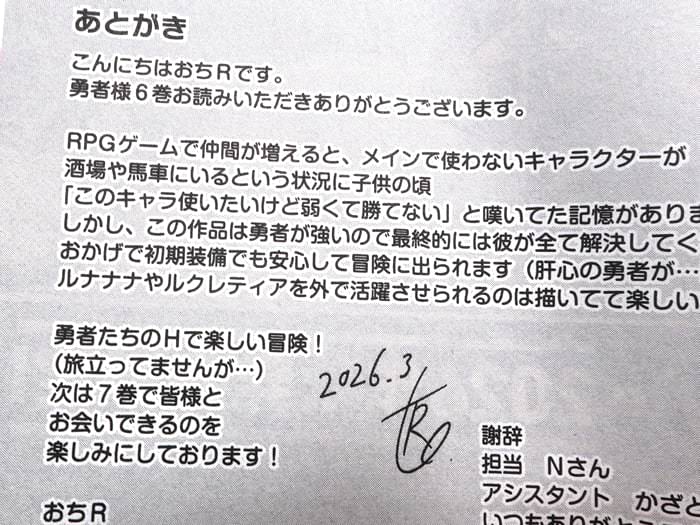 あとがき
こんにちはおちRです。
勇者様6巻お読みいただきありがとうございます。
RPGゲームで仲間が増えると、メインで使わないキャラクターが
酒場や馬車にいるという状況に子供の頃
「このキャラ使いたいけど弱くて勝てない」と嘆いてた記憶がありま
しかし、この作品は勇者が強いので最終的には彼が全て解決してく
おかげで初期装備でも安心して冒険に出られます（肝心の勇者が…
ルナナナやルクレティアを外で活躍させられるのは描いてて楽しい
勇者たちのHで楽しい冒険！
（旅立ってませんが…）
次は7巻で皆様と
お会いできるのを
楽しみにしております！
2026.3
おちR
謝辞
担当　Nさん
アシスタント　かざと
いつもありがと